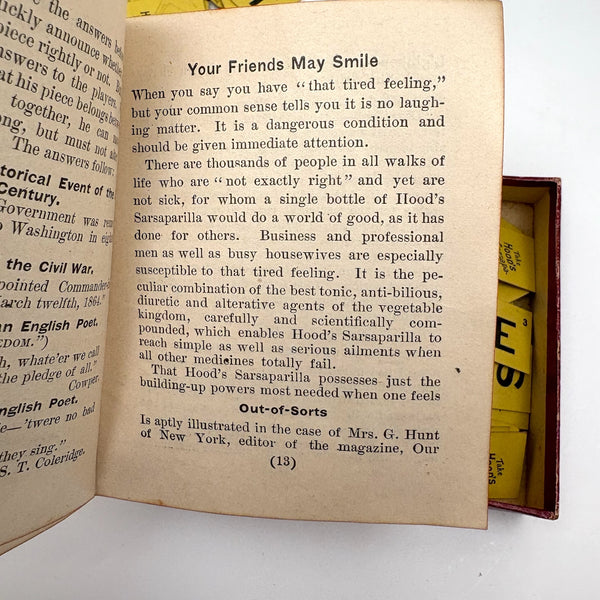 the answers before
quickly announce whether
piece rightly or not.
answers to the players.
at his piece belongs between
together, he can
ong, but must not
The answers follow:
torical Event of the
Century.
Government was
Washington in
the Civil War,
pointed
arch twelfth, 1864."
an English Poet.
EEDOM.")
h, whate'er we call
the pledge of all."
Cowper.
nglish Poet.
e—'twere no bad
they sing."
S. T. Coleridge.
Your Friends May Smile
When you say you have "that tired feeling,"
but your common sense tells you it is no laugh-
ing matter. It is a dangerous condition and
should be given immediate attention.
There are thousands of people in all walks of
life who are "not exactly right" and yet are
not sick, for whom a single bottle of Hood's
Sarsaparilla would do a world of good, as it has
done for others. Business and professional
men as well as busy housewives are especially
susceptible to that tired feeling. It is the pe-
culiar combination of the best tonic, anti-bilious,
diuretic and alterative agents of the vegetable
kingdom, carefully and scientifically com-
pounded, which enables Hood's Sarsaparilla to
reach simple as well as serious ailments when
all other medicines totally fail.
That Hood's Sarsaparilla possesses just the
building-up powers most needed when one feels
Out-of-Sorts
Is aptly illustrated in the case of Mrs. G. Hunt
of New York, editor of the magazine, Our
(13)
Take
Hood's
3
E
Take
Hood's